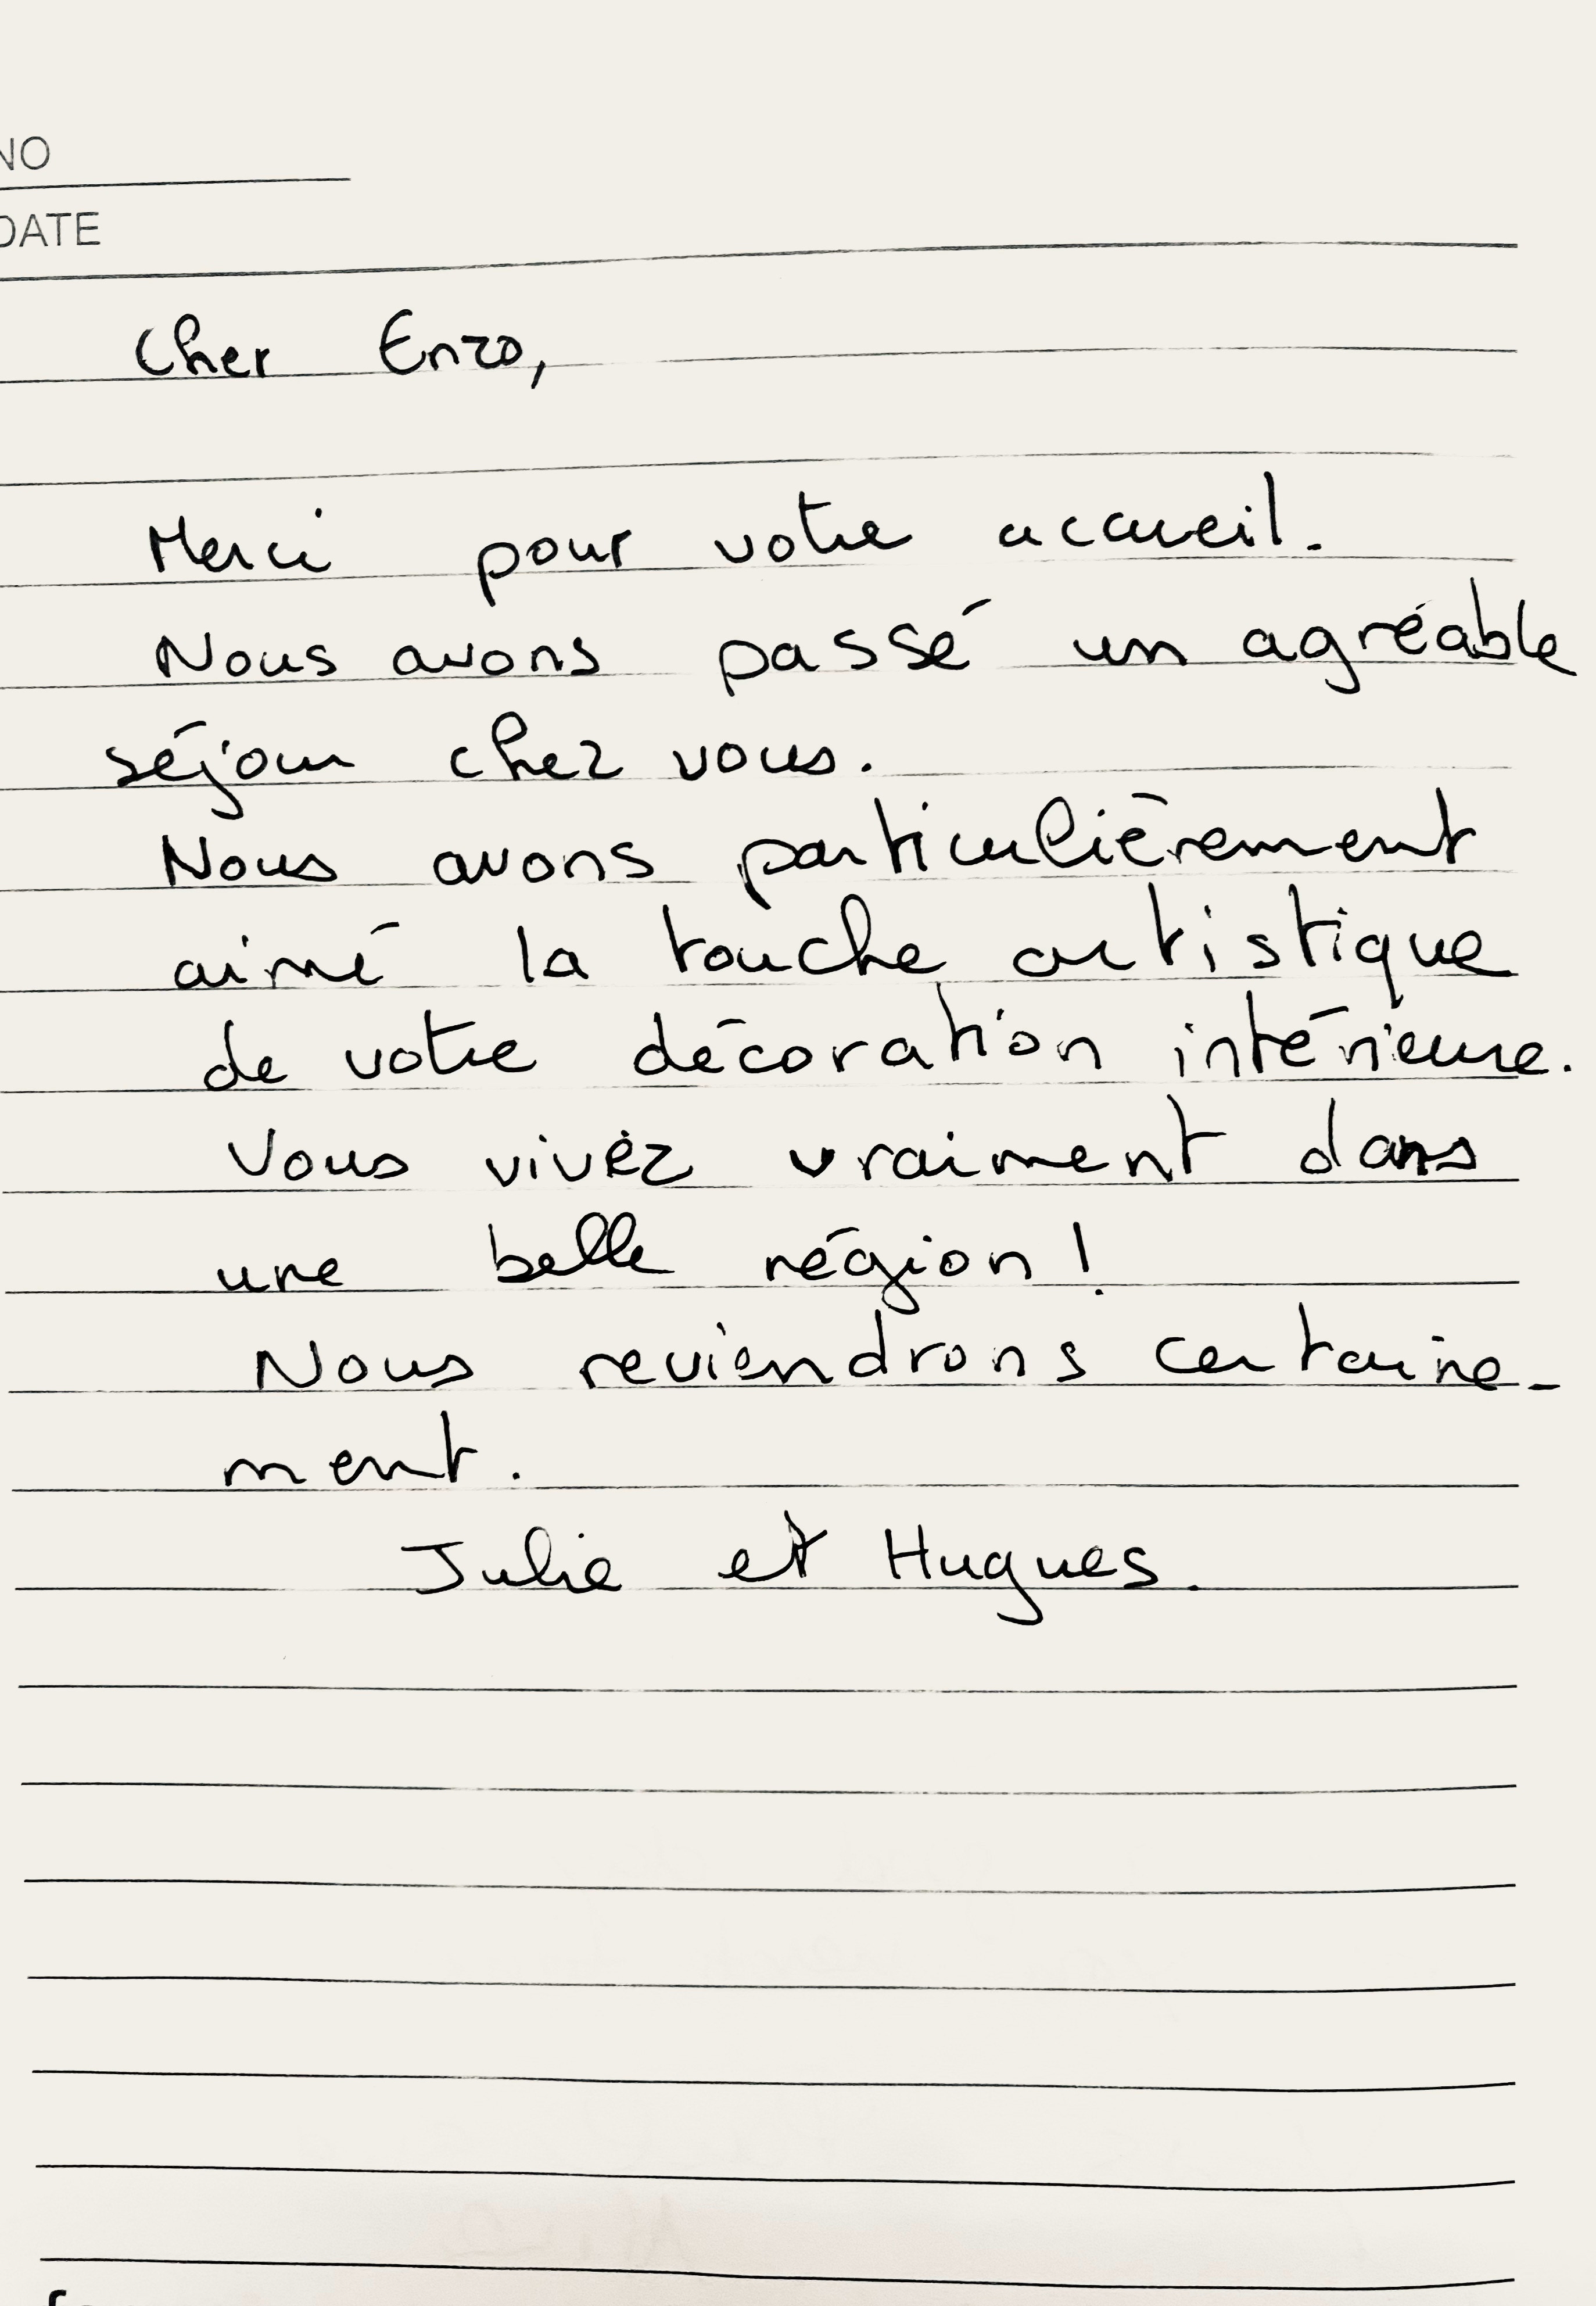 NO
DATE
Cher Enzo,
Merci pour votre accueil.
Nous avons passé un agréable
séjour chez vous.
Nous avons particulièrement
aimé la touche artistique
de votre décoration intérieure.
Vous vivez vraiment dans
une belle région !
Nous reviendrons certaine-
ment.
Julie et Hugues.